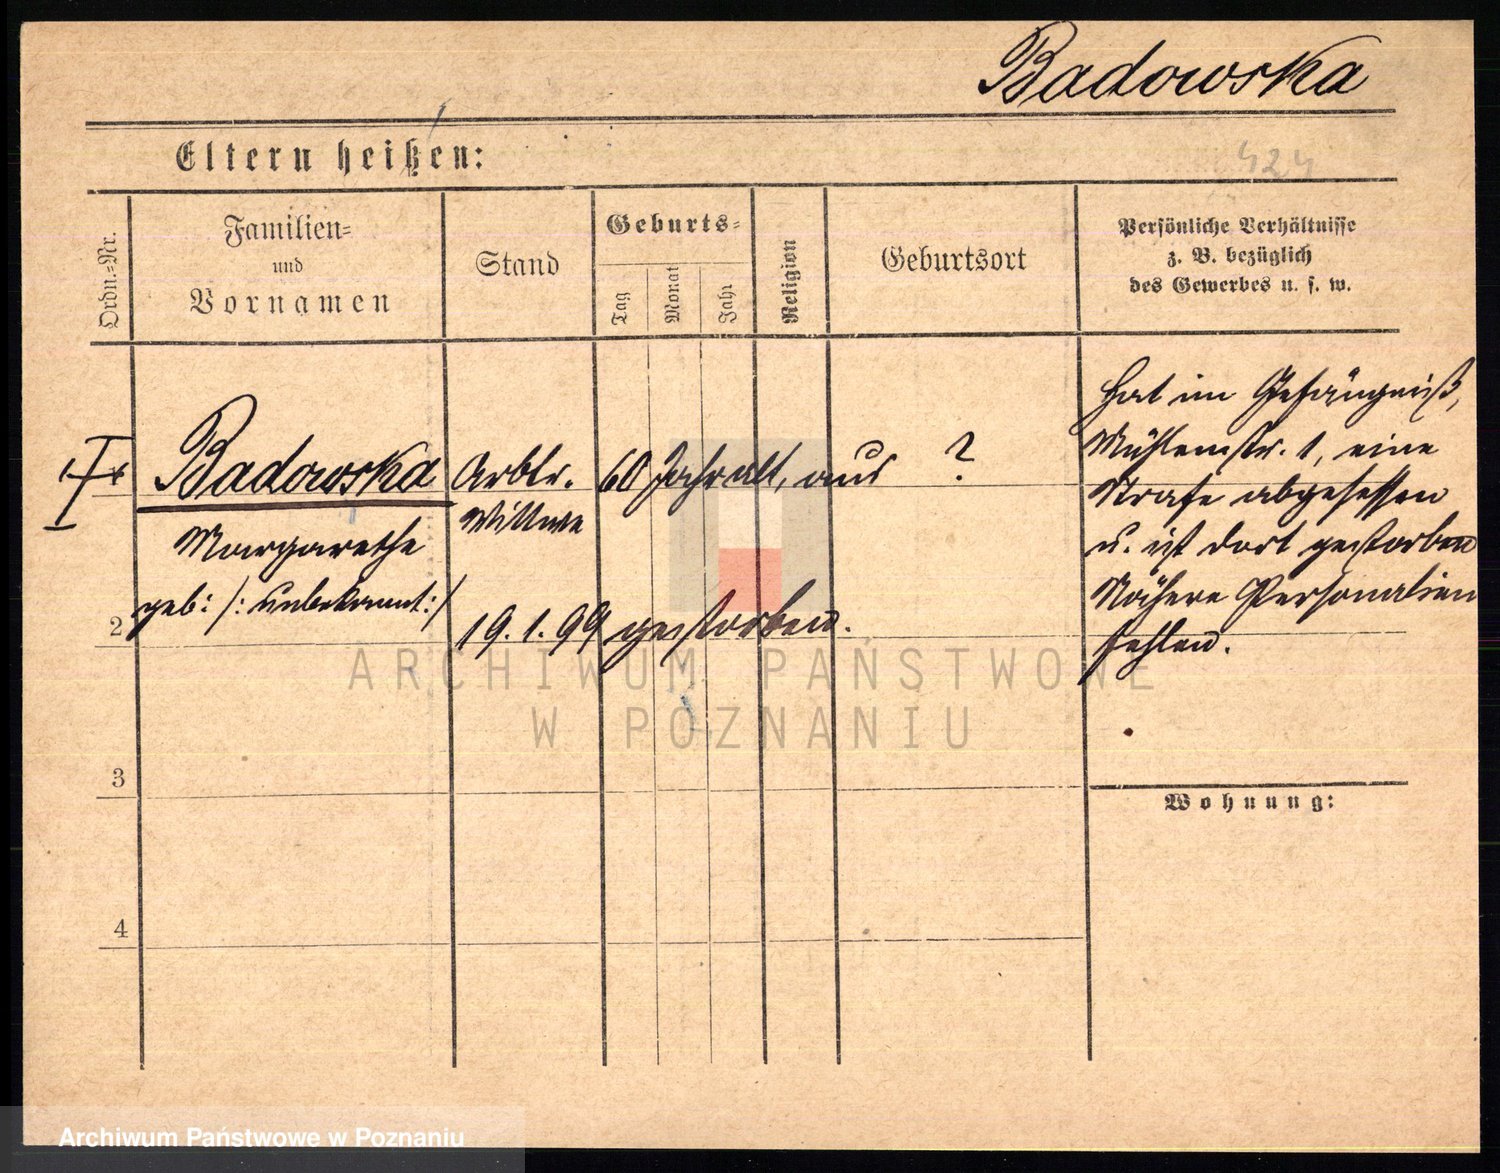 Badowska
Eltern heißen:
424
Ordn.=Nr.
Familien=
und
Vornamen
Stand
Geburts=
Tag
Monat
Jahr
Religion
Geburtsort
Persönliche Verhältnisse
z. B. bezüglich
des Gewerbes u. s. w.
Badowska
Margarethe
geb: /: unbekannt :/
Arbtr.
Wittwe
60 Jahr alt, aus ?
19.1.99 gestorben.
Hat im Gefängniß,
Mühlenstr. 1, eine
Strafe abgesessen
u. ist dort gestorben
Nähere Personalien
fehlen.
2
3
4
Wohnung:
ARCHIWUM PAŃSTWOWE
W POZNANIU
Archiwum Państwowe w Poznaniu